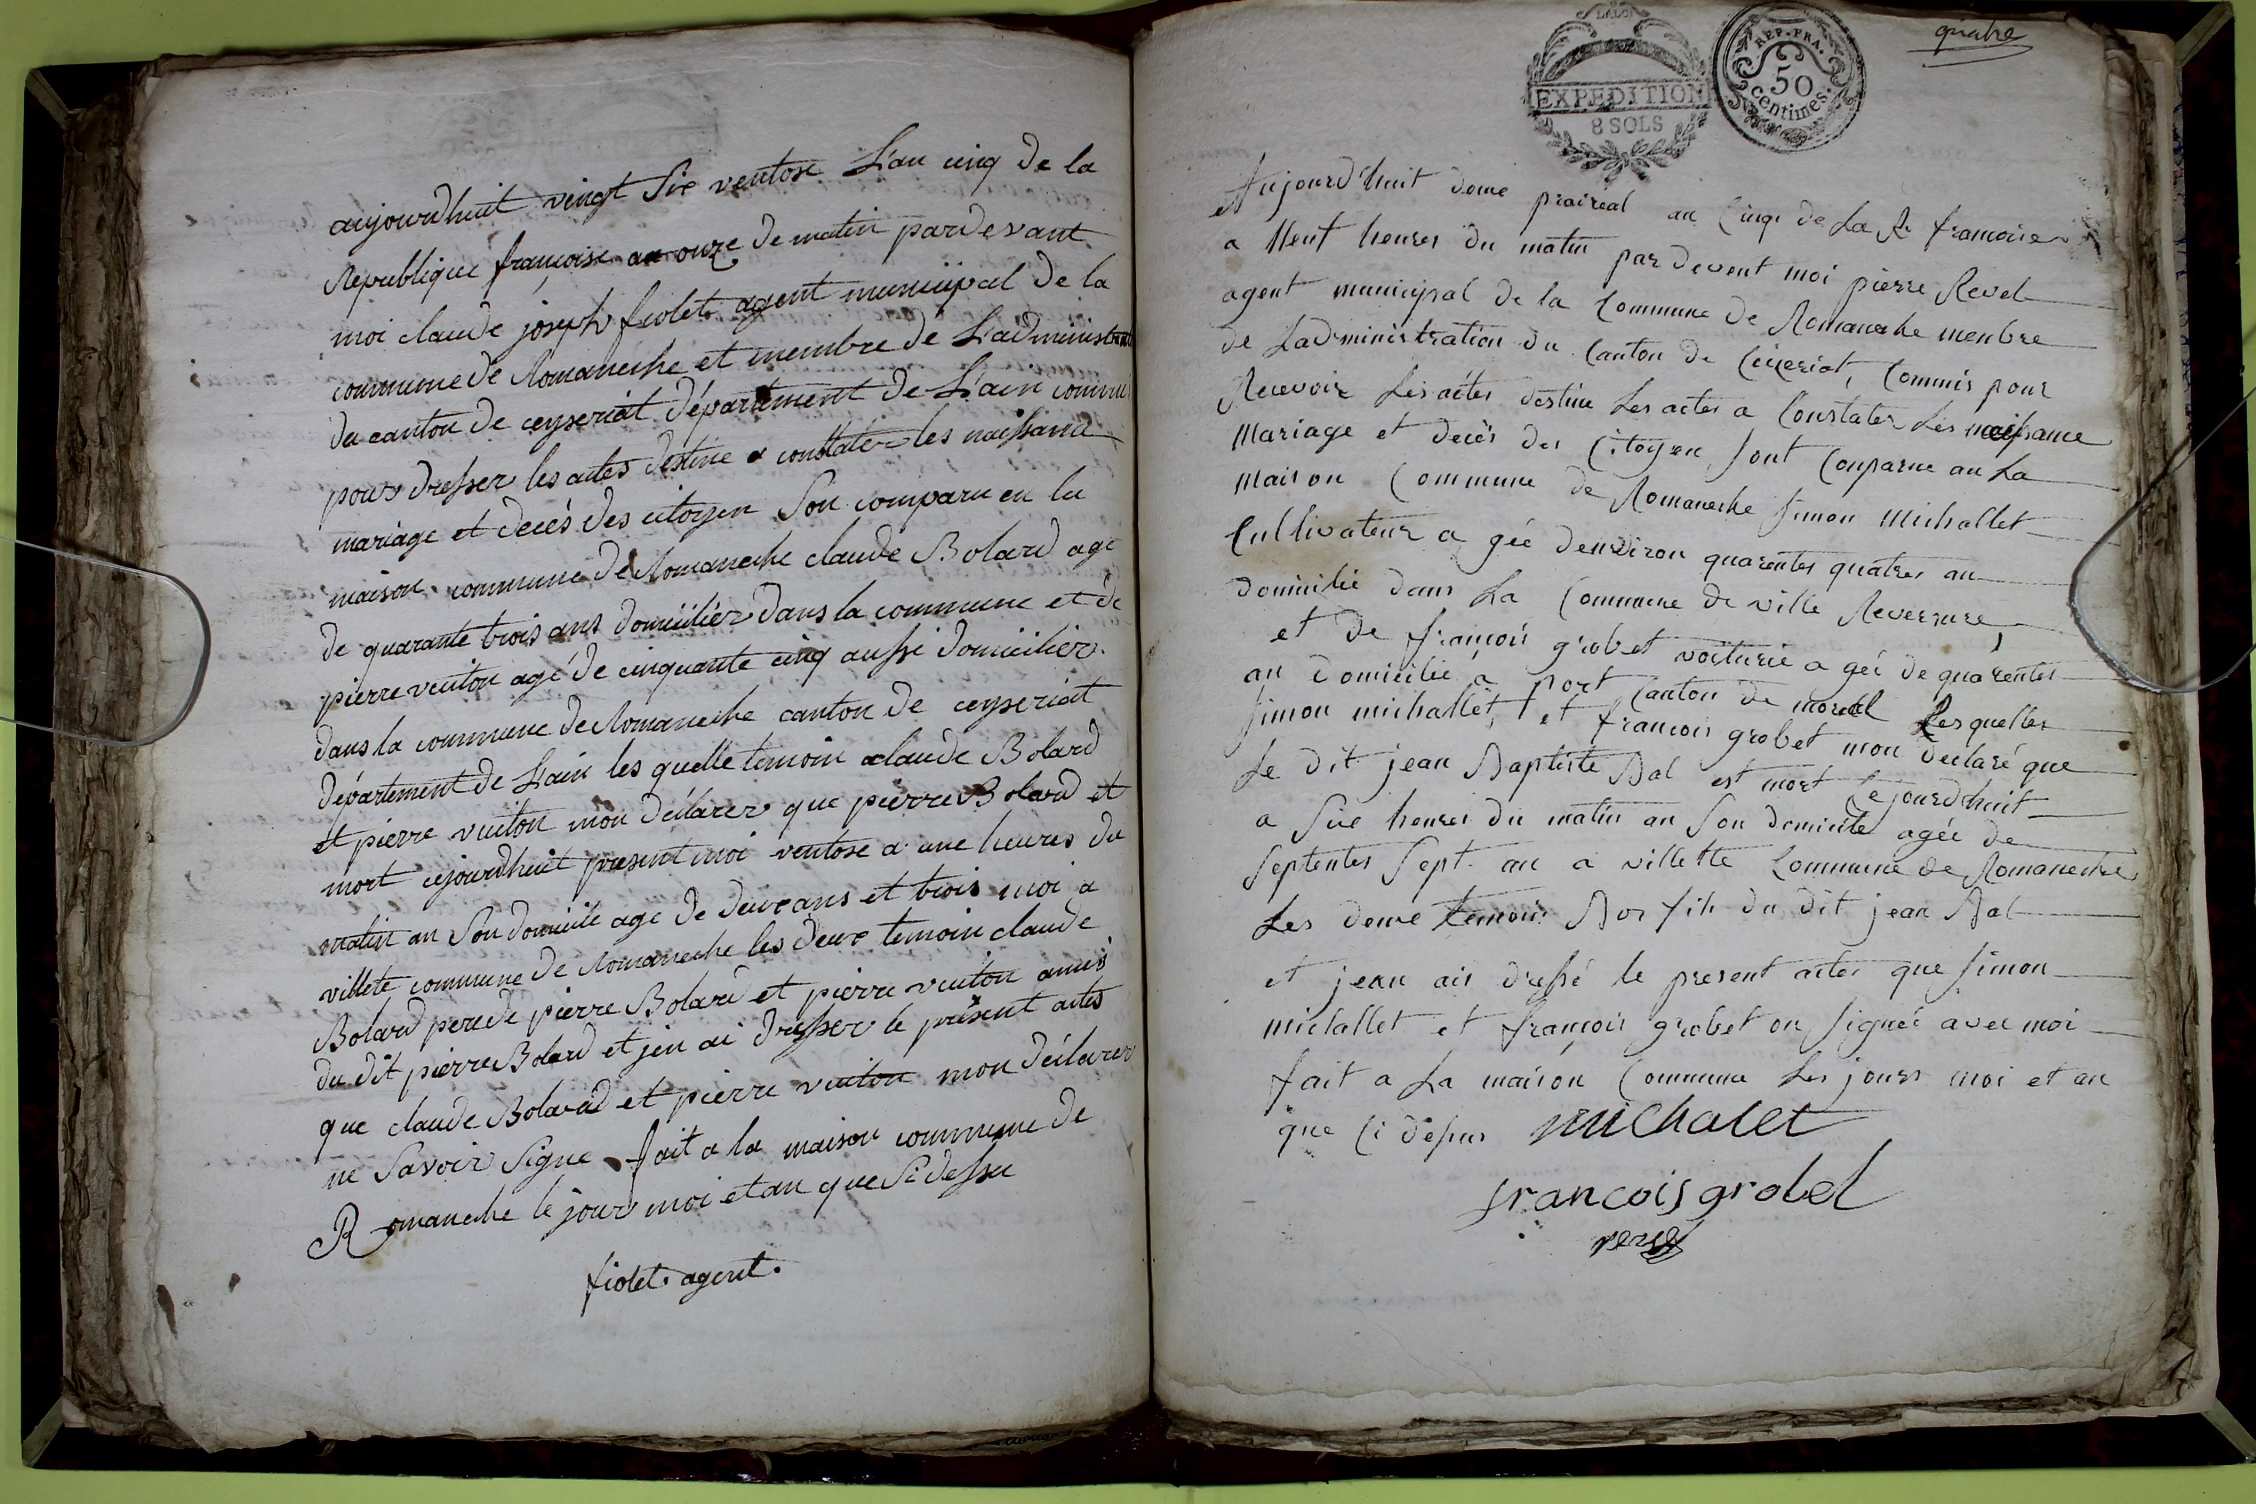 aujourdhuit vingt Six ventose L'an cinq de la
Republique françoise au onze de matin pardevant
moi claude joseph fiolet agent municipal de la
commune de Romaneche et membre de L'administrati
du canton de ceyseriat département de L'ain commi
pour dresser les actes destine a constater les naissance
mariage et decés des citoyen Son comparu en la
maison commune de Romaneche claude Bolard age
de quarante trois ans domicilier dans la commune et de
pierre vuiton agé de cinquante cinq aussi domicilier
dans la commune de Romaneche canton de ceyseriat
département de L'ain les quelle temoin claude Bolard
et pierre vuiton mon déclarer que pierre Bolard et
mort cejourdhuit present moi ventose a une heures du
matin au Son domicile age de deux ans et trois moi a
villete commune de Romaneche les deux temoin claude
Bolard pere de pierre Bolard et pierre vuiton amis
du dit pierre Bolard et jen ai dresser le présent actes
que claude Bolard et pierre vuiton mon déclarer
ne Savoir Signe fait a la maison commune de
Romaneche le jour moi et an que Si dessu
fiolet agent.
quatre
EXPEDITION
8 SOLS
REP. FRA.
50
centimes.
Aujourd'huit douze prairéal an Cinqe de La R francoise
a Neuf heures du matin par devent moi pierre Revel
agent municipal de la Commune de Romaneche menbre
de Ladministration du Canton de Ceizeriat, Commis pour
Recevoir Les actes destine Les actes a Constater Les naissance
Mariage et decés des Citoyen Sont Conparue au La
Maison Commune de Romaneche Simon Michallet
Cultivateur a gée denviron quarentes quatres an
domicilie dans La Commune de ville Reversure,
et de françois grobet voiturie a gée de quarentes
an domicilié a port Canton de Lesquelles
Simon michallet, et francois grobet mon declaré que
Le dit jean Baptiste Bal est mort Cejourdhuit
a Sixe heures du matin an Son domicile agée de
Septentes Sept an a villette Commune de Romaneche
Les deuxe temoin fils du dit jean Bal
et jean ais dressé le present actes que Simon
michallet et françois grobet on Signée avec moi
fait a La maison Commune Les jours moi et an
que Ci desus michalet
francois grobel
revel